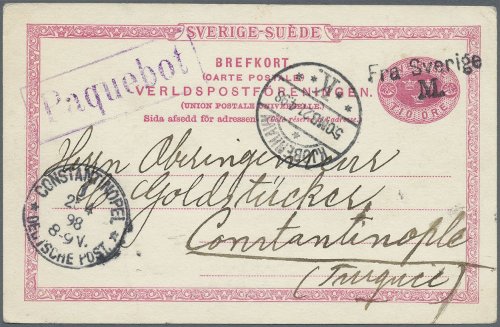 SVERIGE-SUÈDE
Paquebot
BREFKORT.
(CARTE POSTALE.)
VERLDSPOSTFÖRENINGEN.
(UNION POSTALE UNIVERSELLE.)
Sida afsedd för adressen. (Côté réservé à l'adresse.)
Fra Sverige
M.
TIO ÖRE
KJØBENHAVN
K.
Herrn Oberingenieur
Goldstücker.
Constantinople
(Turquie)
CONSTANTINOPEL
98
8-9 V.
DEUTSCHE POST